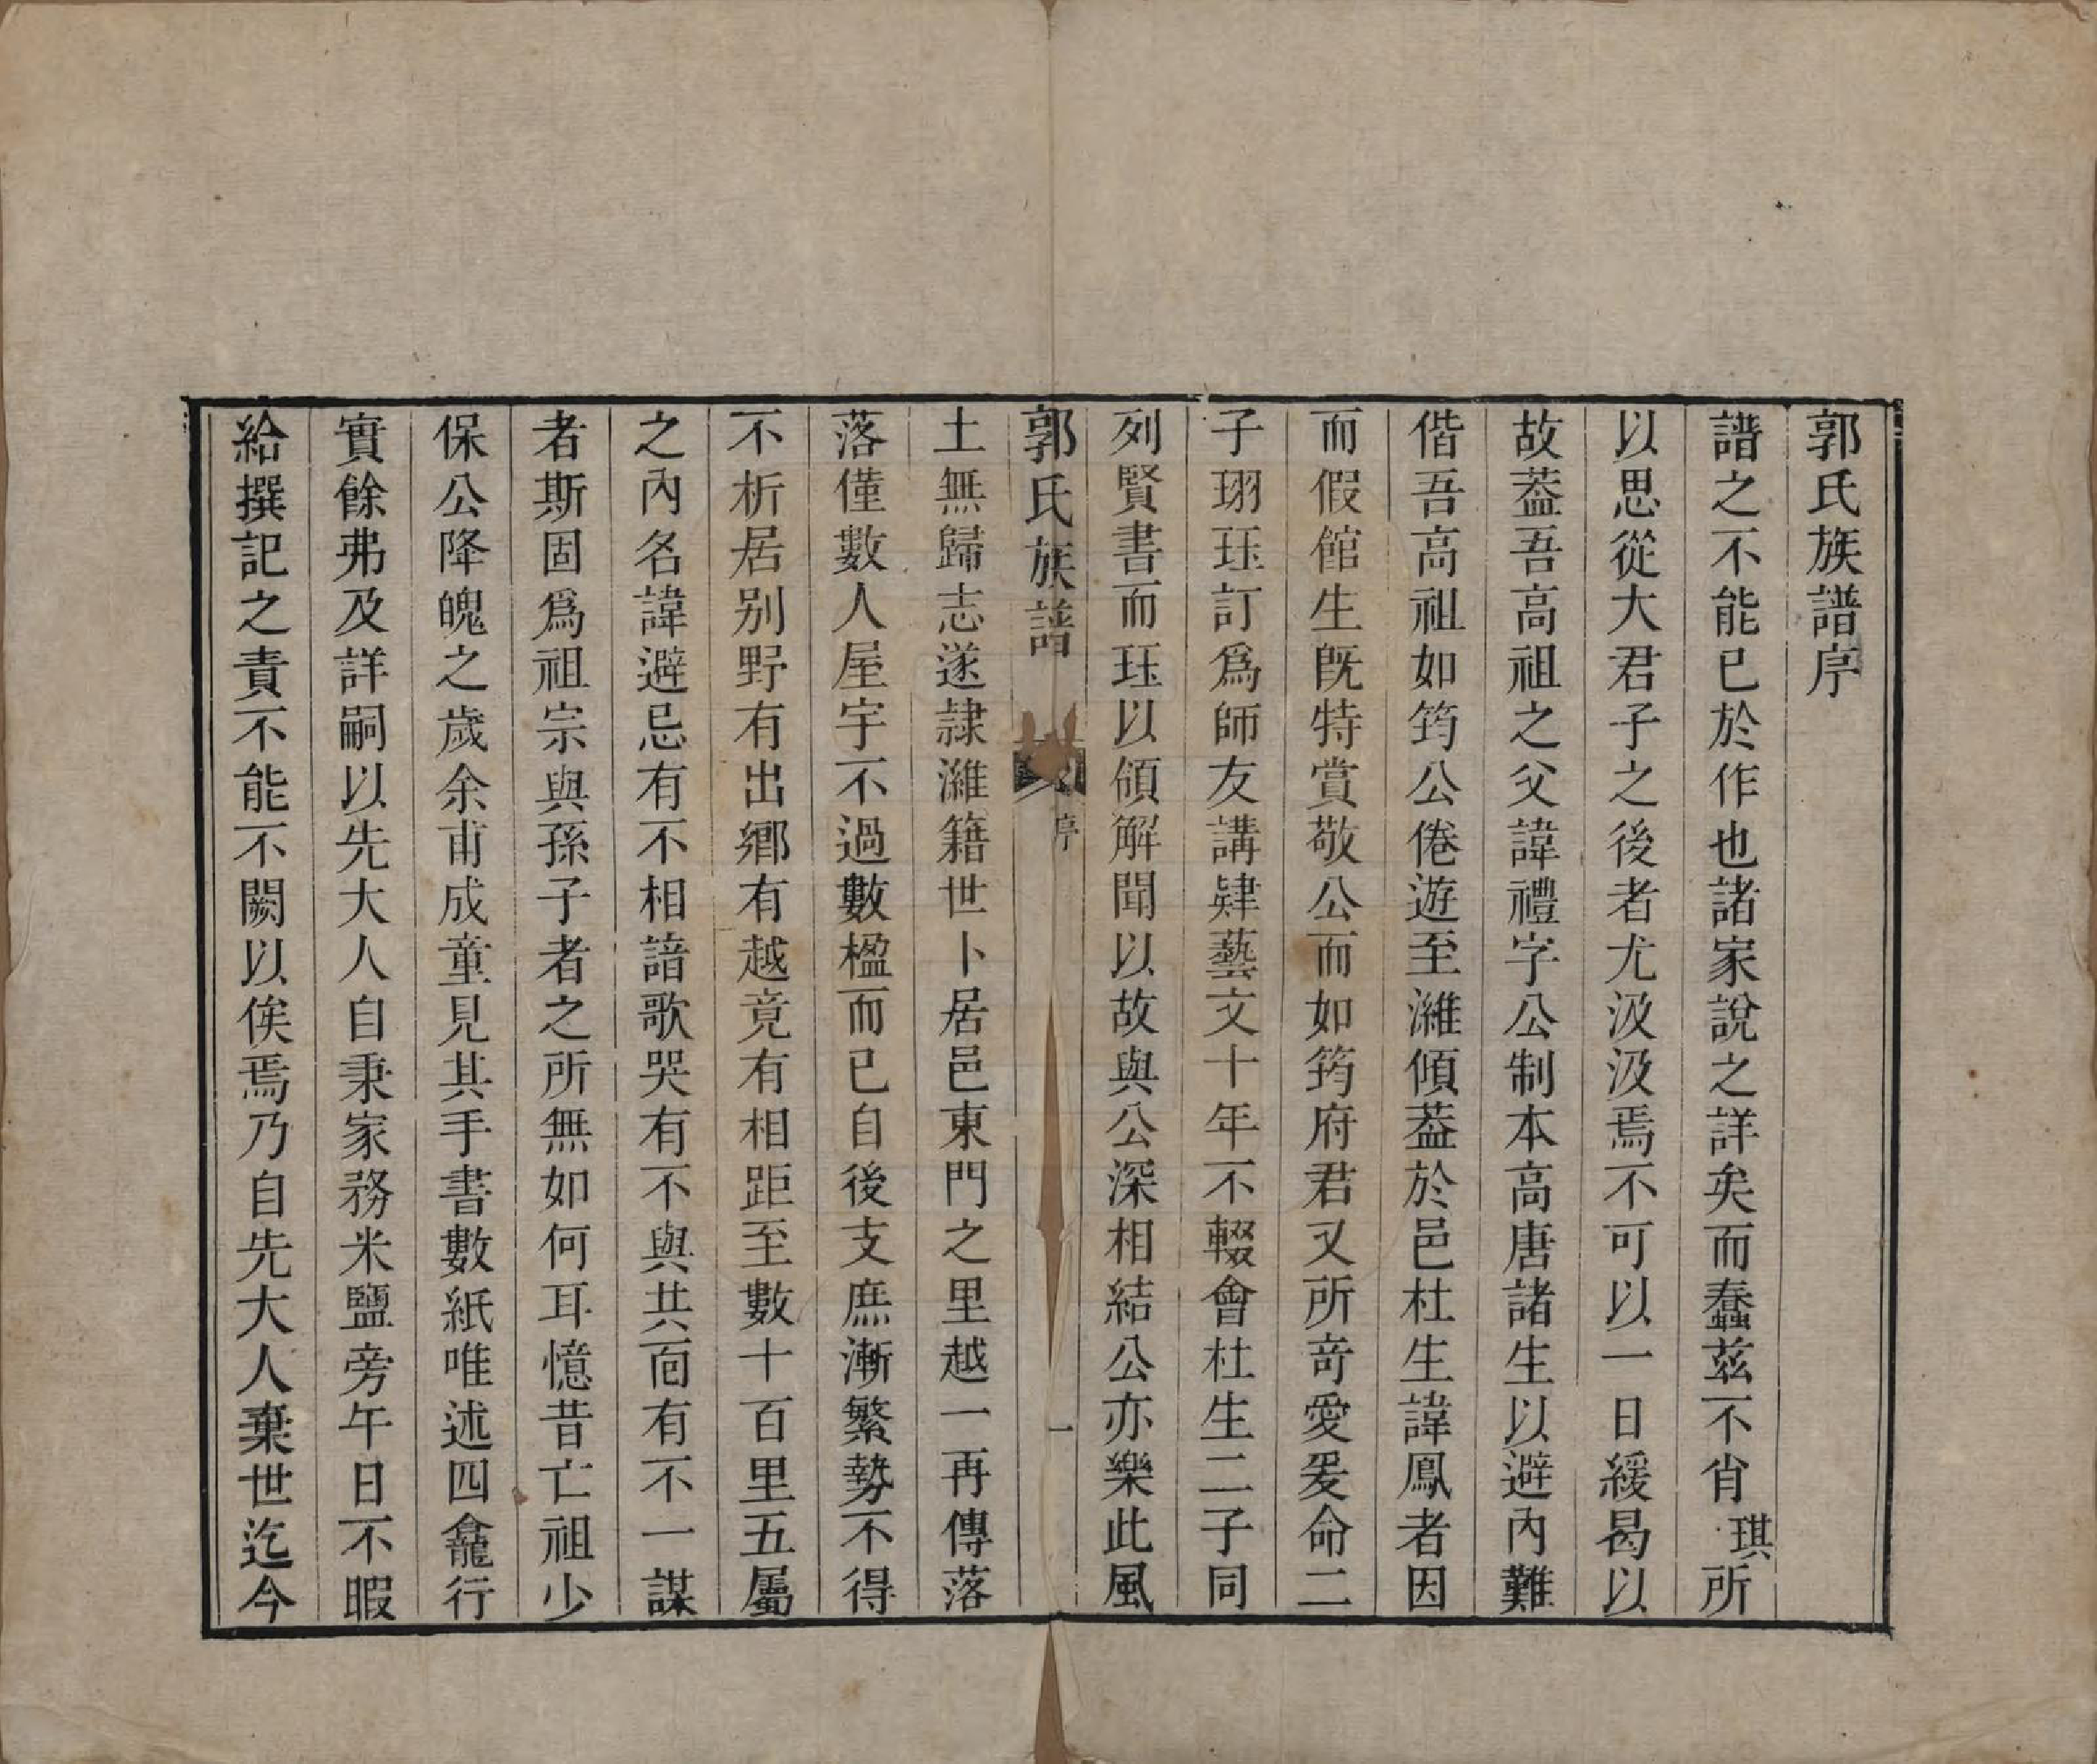 郭氏族譜序
譜之不能已於作也諸家說之詳矣而蠢茲不肖琪所
以思從大君子之後者尤汲汲焉不可以一日緩曷以
故葢吾高祖之父諱禮字公制本高唐諸生以避內難
偕吾高祖如筠公倦遊至濰傾葢於邑杜生諱鳳者因
而假館生旣特賞敬公而如筠府君又所竒愛爰命二
子珝珏訂爲師友講肄藝文十年不輟會杜生二子同
列賢書而珏以領解聞以故與公深相結公亦樂此風
郭氏族譜
序
一
土無歸志遂隷濰籍世卜居邑東門之里越一再傳落
落僅數人屋宇不過數楹而已自後支庶漸繁勢不得
不析居别野有出鄉有越竟有相距至數十百里五屬
之內名諱避忌有不相諳歌哭有不與共而有不一謀
者斯固爲祖宗與孫子者之所無如何耳憶昔亡祖少
保公降魄之歲余甫成童見其手書數紙唯述四龕行
實餘弗及詳嗣以先大人自秉家務米鹽旁午日不暇
給撰記之責不能不闕以俟焉乃自先大人棄世迄今